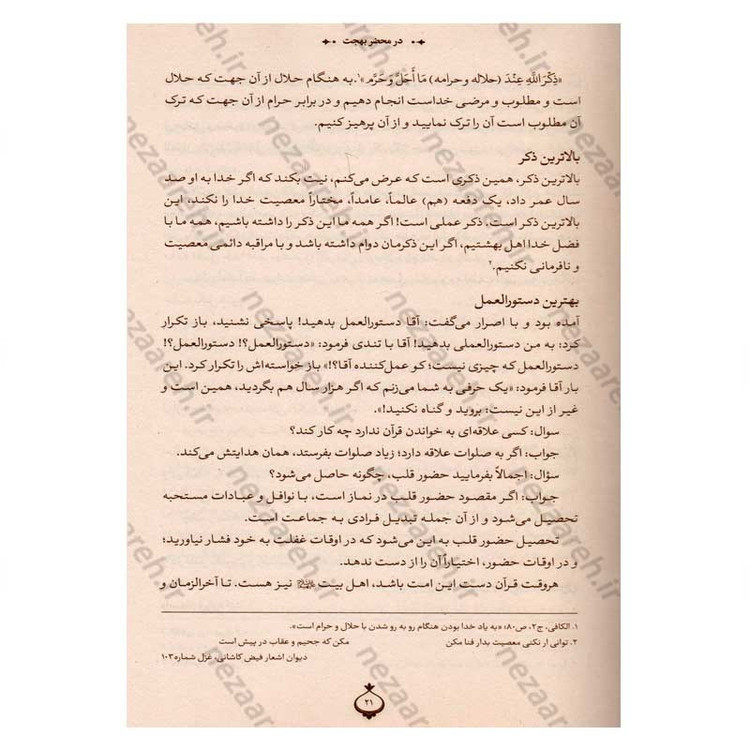 در محضر بهجت
«ذِکْرَ اللهِ عِنْدَ (حلاله وحرامه) مَا أَحَلَّ وَحَرَّم»۱. به هنگام حلال از آن جهت که حلال
است و مطلوب و مرضی خداست انجام دهیم و در برابر حرام از آن جهت که ترک
آن مطلوب است آن را ترک نمایید و از آن پرهیز کنیم.
بالاترین ذکر
بالاترین ذکر، همین ذکری است که عرض می‌کنم، نیت بکند که اگر خدا به او صد
سال عمر داد، یک دفعه (هم) عالماً، عامداً، مختاراً معصیت خدا را نکند، این
بالاترین ذکر است، ذکر عملی است! اگر همه ما این ذکر را داشته باشیم، همه ما با
فضل خدا اهل بهشتیم، اگر این ذکرمان دوام داشته باشد و با مراقبه دائمی معصیت
و نافرمانی نکنیم.۲
بهترین دستورالعمل
آمده بود و با اصرار می‌گفت: آقا دستورالعمل بدهید! پاسخی نشنید، باز تکرار
کرد: به من دستورالعملی بدهید! آقا با تندی فرمود: «دستورالعمل؟! دستورالعمل؟!
دستورالعمل که چیزی نیست؛ کو عمل‌کننده آقا؟!» باز خواسته‌اش را تکرار کرد. این
بار آقا فرمود: «یک حرفی به شما می‌زنم که اگر هزار سال هم بگردید، همین است و
غیر از این نیست: بروید و گناه نکنید!».
سوال: کسی علاقه‌ای به خواندن قرآن ندارد چه کار کند؟
جواب: اگر به صلوات علاقه دارد؛ زیاد صلوات بفرستد، همان هدایتش می‌کند.
سؤال: اجمالاً بفرمایید حضور قلب، چگونه حاصل می‌شود؟
جواب: اگر مقصود حضور قلب در نماز است، با نوافل و عبادات مستحبه
تحصیل می‌شود و از آن جمله تبدیل فرادی به جماعت است.
تحصیل حضور قلب به این می‌شود که در اوقات غفلت به خود فشار نیاورید؛
و در اوقات حضور، اختیاراً آن را از دست ندهد.
هروقت قرآن دست این امت باشد، اهل بیت نیز هست. تا آخرالزمان و
۱. الکافی، ج۲، ص۸۰؛ «به یاد خدا بودن هنگام رو به رو شدن با حلال و حرام است».
۲. توانی ار نکنی معصیت بدار فنا مکن مکن که جحیم و عقاب در پیش است
دیوان اشعار فیض کاشانی، غزل شماره۱۰۳
۲۱
nezaareh.ir